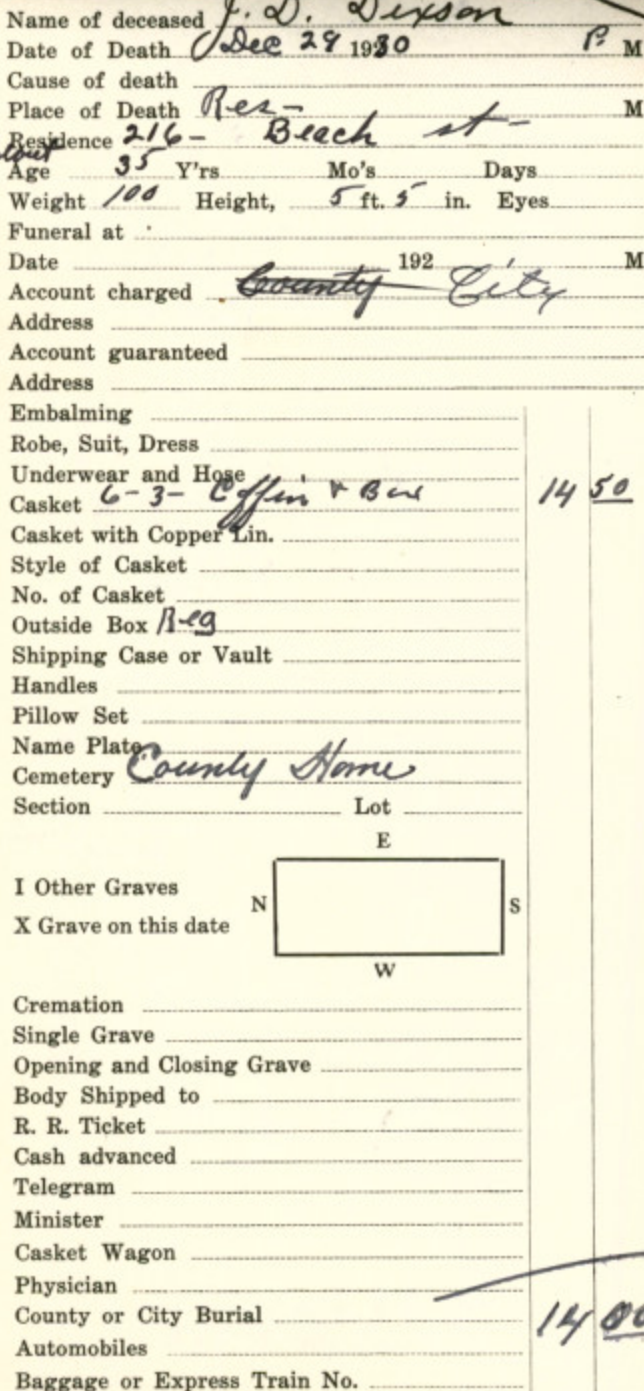 Name of deceased J. D. Dixson
Date of Death Dec 29 1930 P. M
Cause of death
Place of Death Res- M
Residence 216- Beach st-
about
Age 35 Y'rs Mo's Days
Weight 100 Height, 5 ft. 5 in. Eyes
Funeral at
Date 192 M
Account charged County City
Address
Account guaranteed
Address
Embalming
Robe, Suit, Dress
Underwear and Hose
Casket 6-3- Coffin & Box 14 50
Casket with Copper Lin.
Style of Casket
No. of Casket
Outside Box Reg
Shipping Case or Vault
Handles
Pillow Set
Name Plate
Cemetery County Home
Section Lot
E
I Other Graves
N S
X Grave on this date
W
Cremation
Single Grave
Opening and Closing Grave
Body Shipped to
R. R. Ticket
Cash advanced
Telegram
Minister
Casket Wagon
Physician
County or City Burial 14 00
Automobiles
Baggage or Express Train No.